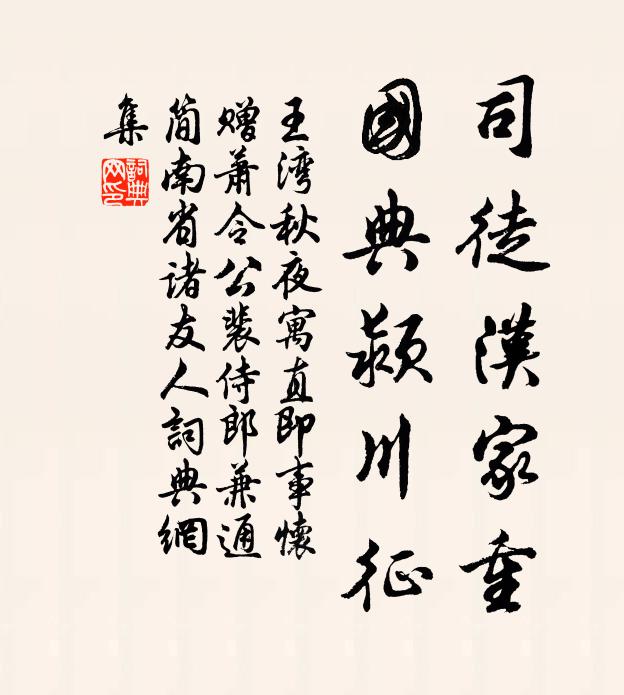 司徒漢家重
國典潁川征
王湾秋夜寓直即事懷
贈萧令公裴侍郎兼通
简南省诸友人詞典網
集
詞典
网印